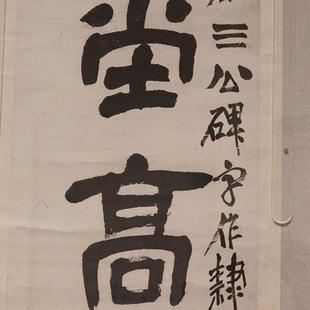 三公碑字作隸
堂高